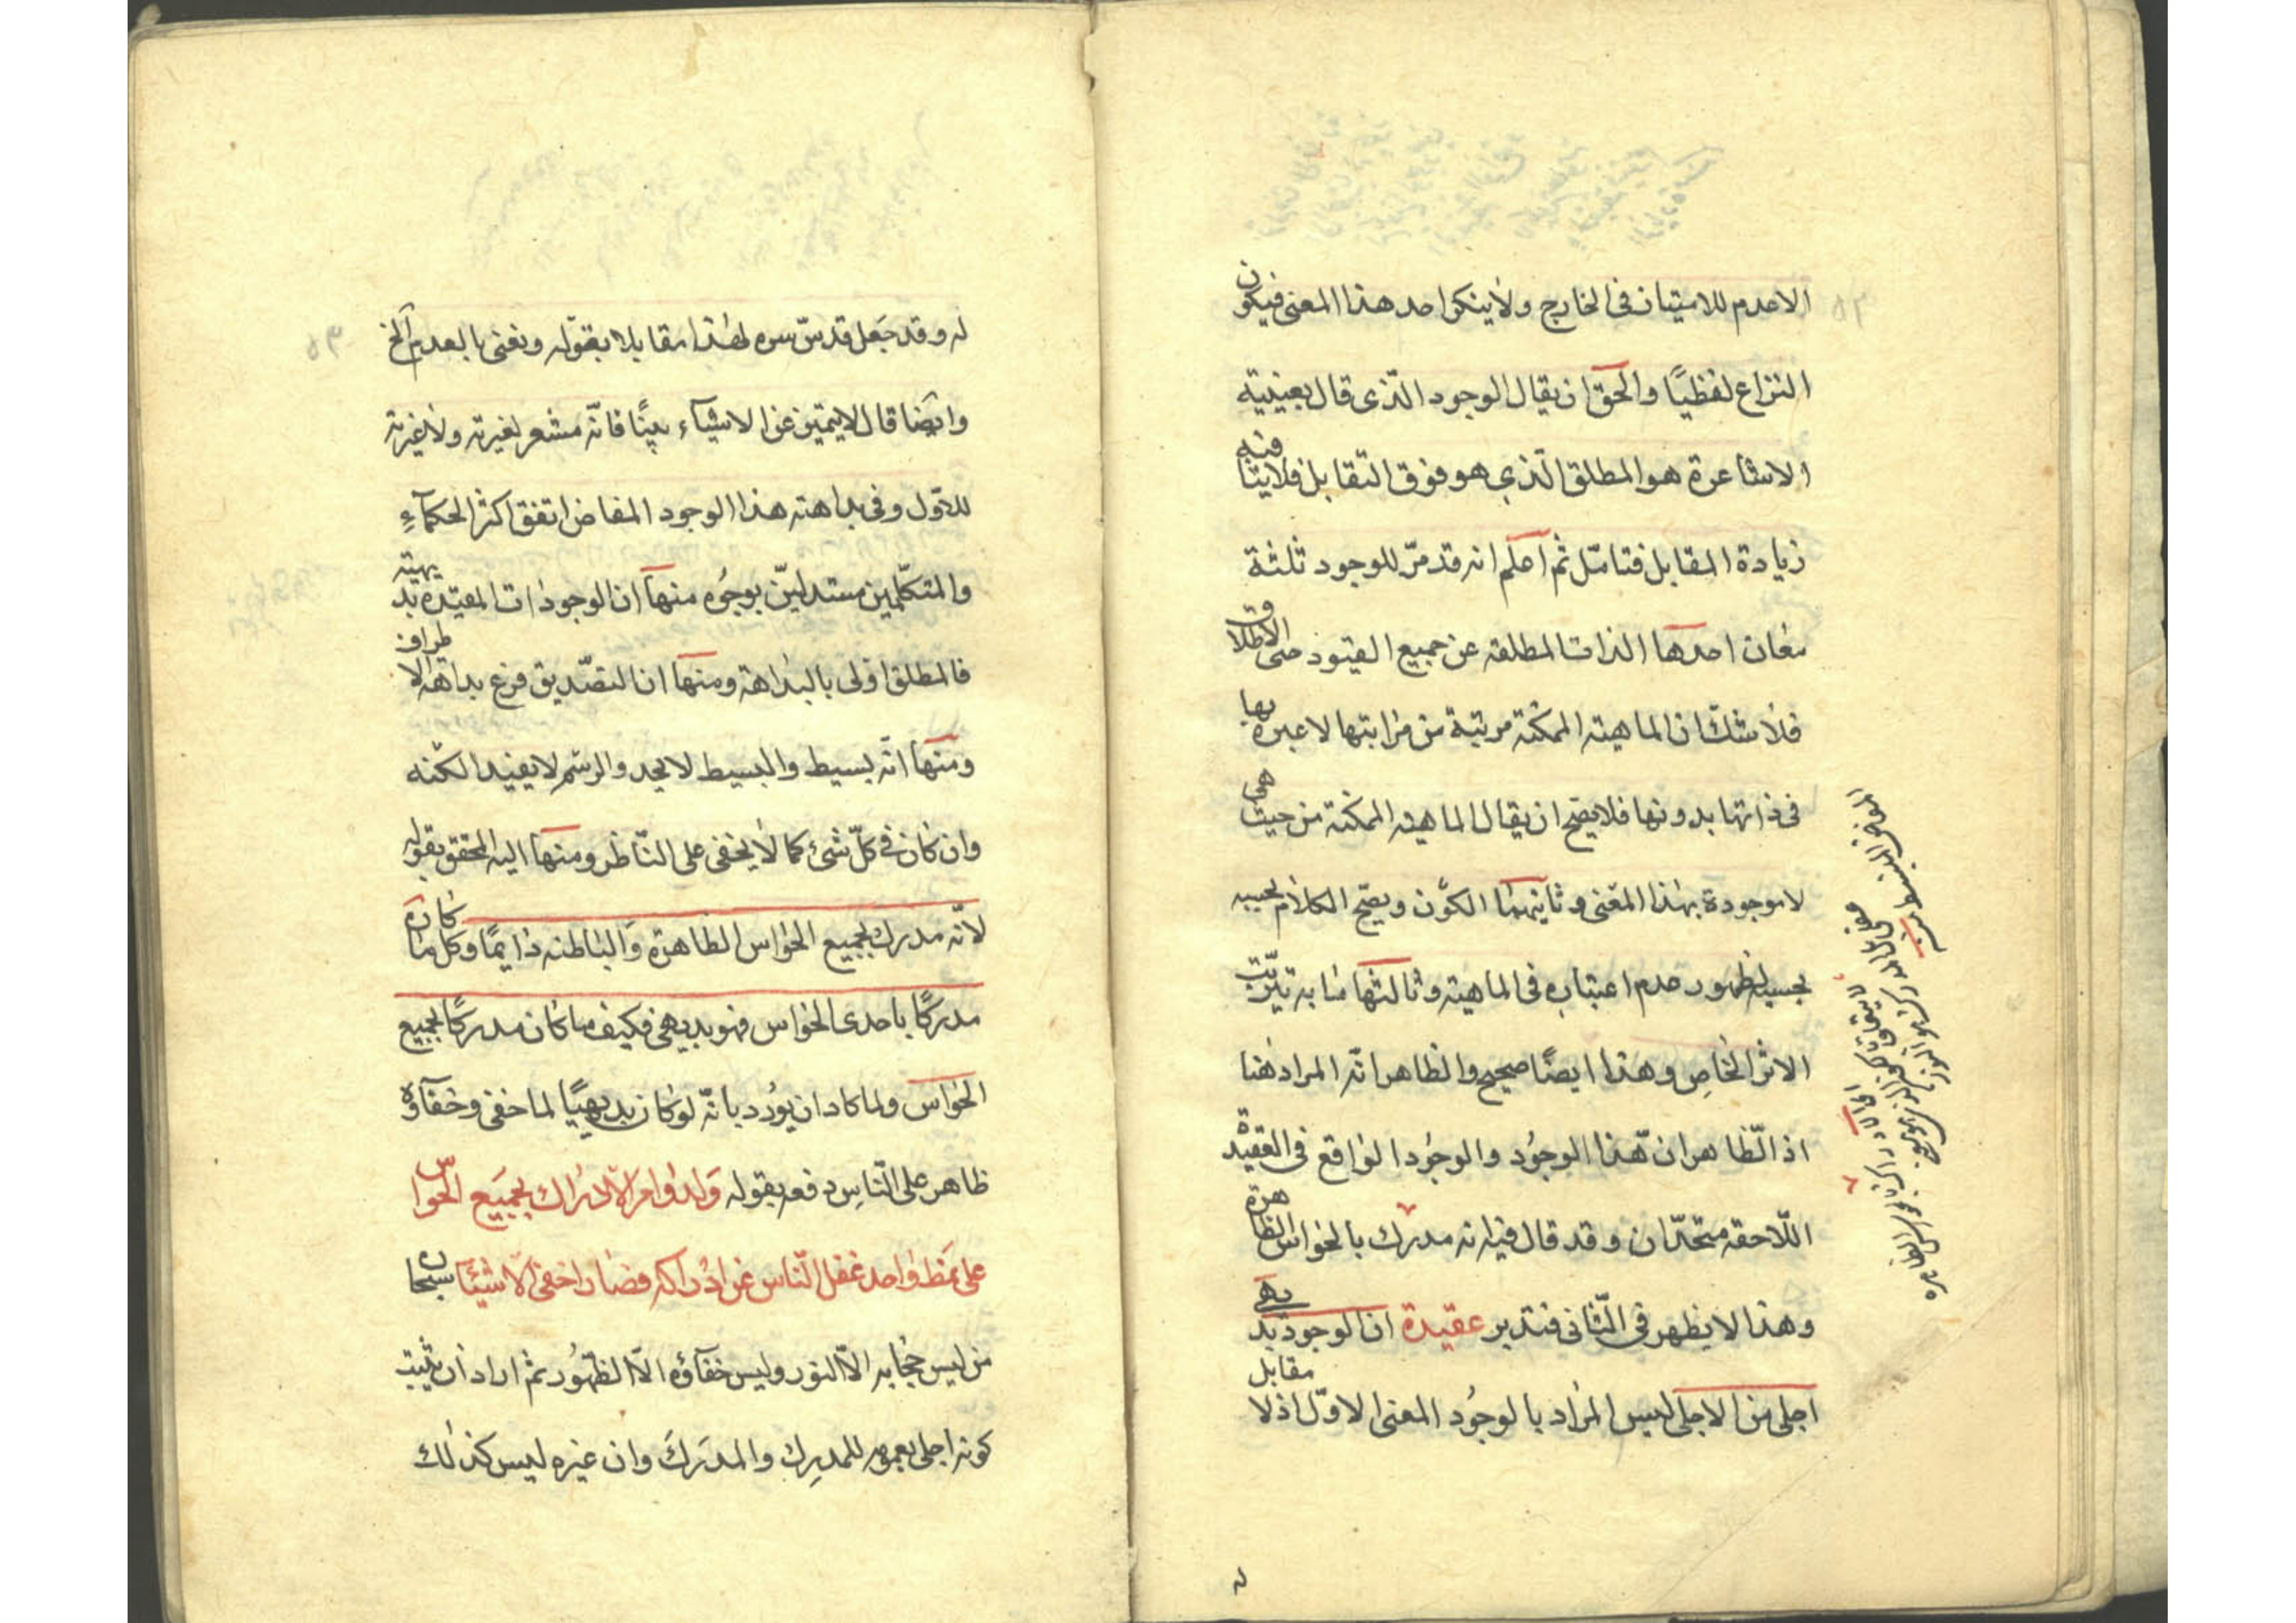 الا عدم للامتياز فى الخارج ولا ينكر احد هذا المعنى فيكون
النزاع لفظيًا والحق ان يقال الوجود الذى قال بعينيته
الاشاعرة هو المطلق الذي هو فوق التقابل فلا ينافيه
زيادة المقابل فتامّل ثم اعلم انه قد مرّ للوجود ثلثة
معان احدها الذات المطلقه عن جميع القيود حتى الاطلاق
فلا شك ان الماهيته الممكنة مرتبة من مراتبها لا عبرة بها
فى ذاتها بدونها فلا يصح ان يقال الماهيته الممكنة من حيث هى
لا موجودة بهذا المعنى وثانيهما الكون ويصح الكلام بحسبه
بحسبه لظهور عدم اعتباره فى الماهيته وثالثها ما به تيرتب
الاثر الخاص وهذا ايضًا صحيح والظاهر انّه المراد هنا
اذ الظاهر ان هذا الوجُود والوجُود الواقع فى العقيدة
اللاحقه متحدان وقد قال فيه انه مدرك بالحواس الظاهرة
وهذا لا يظهر فى الثانى فتدبر عقيدة ان الوجود بديهى
اجلى من الاجلى ليس المراد بالوجُود المعنى الاوّل اذ لا مقابل
له وقد جَعل قدسّ سره لهذا مقابلا بقوله ونعنى بالعدم الخ
وايضا قال لا يتميز عن الاشيآء بينًا فانّه مشعر بغيرته ولا غيرته
للاوّل وفى بداهته هذا الوجود المفاض اتفق اكثر الحكمآء
والمتكلّمين مستدليّن بوجُوه منها ان الوجودات المقيّده بديهيته
فالمطلق اولى بالبداهة ومنها ان التصديق فرع بداهة الاطراف
ومنها انّه بسيط والبسيط لا يحد والرسم لا يفيد الكنه
وان كان فى كلّ شئ كما لا يخفى على النّاظر ومنها اليه المحقق بقوله
لانّه مدرك بجميع الحواس الظاهرة والباطنه دايمًا وكل ما كان
مدركًا باحدى الحواس فهو بديهى فكيف ما كان مدركًا بجميع
الحواس ولما كاد ان يورُد بانّه لو كان بديهيًا لما خفى وخفآؤه
ظاهر على النّاس دفعه بقوله ولدوام الادراك بجميع الحواسّ
على نمط واحد غفل النّاس عن ادراكه فصار اخفى الاشيآ سبحان
من ليس حجابه الّا النور وليس خفآؤه الّا الظهُور ثم اراد ان يثبت
كونه اجلى بعموم للمدرِك والمدرَك وان غيره ليس كذلك